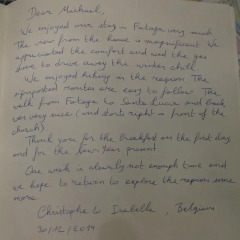 Dear Michael,
We enjoyed our stay in Fataga very much.
The view from the house is magnificent. We
appreciated the comfort and used the gas
fire to drive away the winter chill.
We enjoyed hiking in the region. The
signposted routes are easy to follow. The
walk from Fataga to Santa Lucia and back
was very nice (and starts right in front of the
church).
Thank you for the breakfast on the first day
and for the New Year present.
One week is clearly not enough time and
we hope to return to explore the region some
more.
Christophe & Isabelle, Belgium
30/12/2014